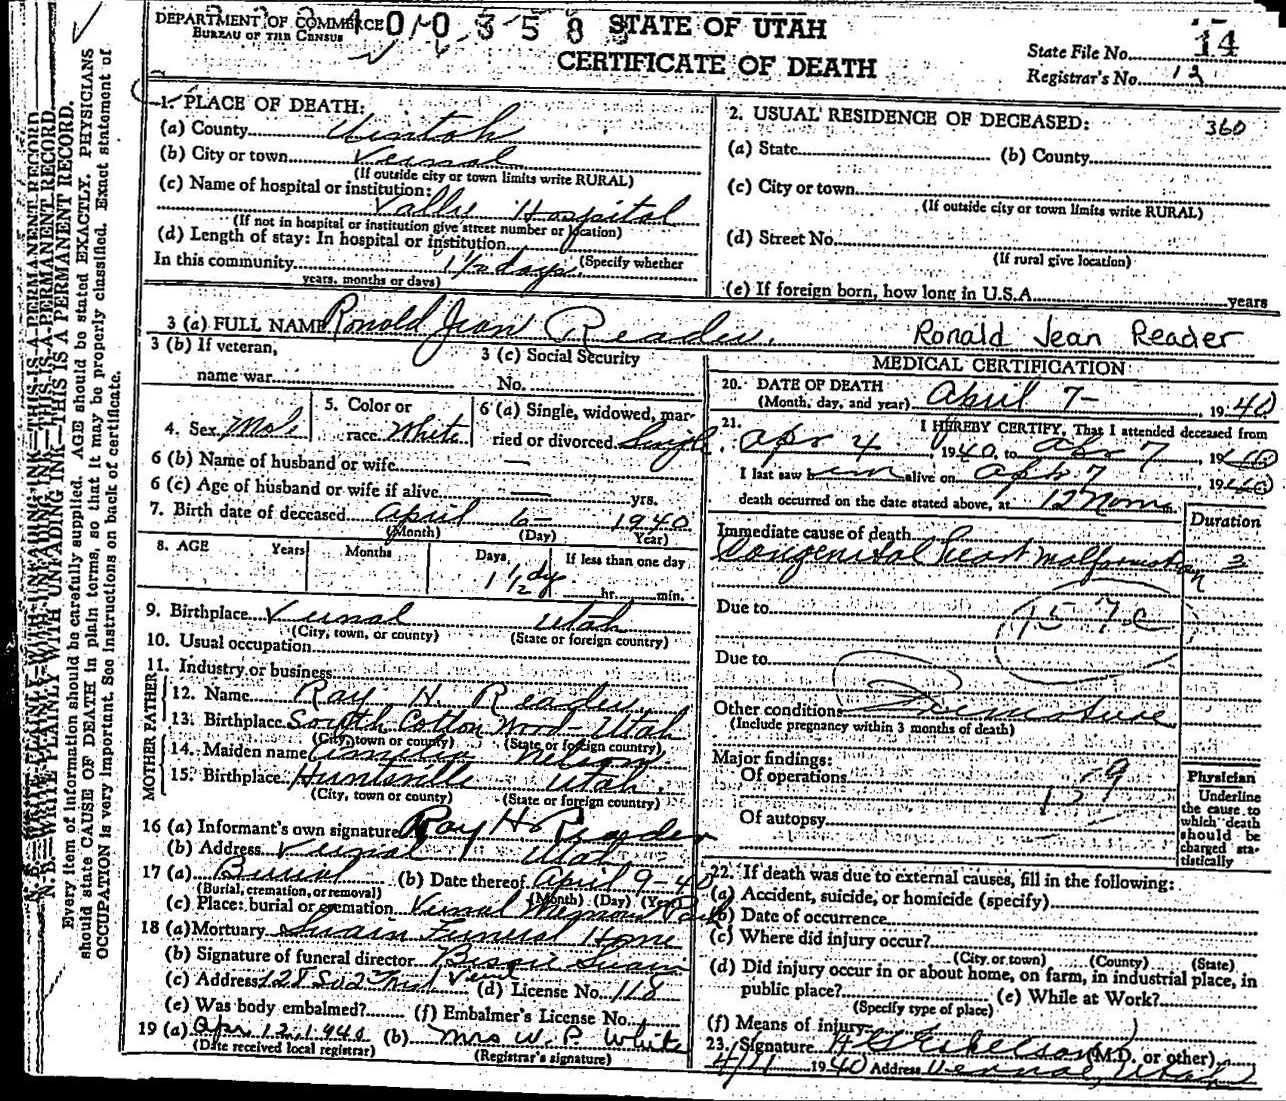 DEPARTMENT OF COMMERCE
BUREAU OF THE CENSUS
STATE OF UTAH
CERTIFICATE OF DEATH
State File No. 14
Registrar's No. 12
1. PLACE OF DEATH:
(a) County Uintah
(b) City or town Vernal
(If outside city or town limits write RURAL)
(c) Name of hospital or institution:
Valley Hospital
(If not in hospital or institution give street number or location)
(d) Length of stay: In hospital or institution
In this community 1 1/2 days (Specify whether
years, months or days)
2. USUAL RESIDENCE OF DECEASED: 360
(a) State (b) County
(c) City or town
(If outside city or town limits write RURAL)
(d) Street No.
(If rural give location)
(e) If foreign born, how long in U.S.A. years
3 (a) FULL NAME Ronald Jean Reader. Ronald Jean Reader
3 (b) If veteran,
name war
3 (c) Social Security
No.
4. Sex Male
5. Color or
race White
6 (a) Single, widowed, mar-
ried or divorced Single
6 (b) Name of husband or wife —
6 (c) Age of husband or wife if alive — yrs.
7. Birth date of deceased April 6- 1940
(Month) (Day) Year)
8. AGE Years Months Days If less than one day
1 1/2 dy hr. min.
9. Birthplace Vernal Utah
(City, town, or county) (State or foreign country)
10. Usual occupation
11. Industry or business
FATHER
12. Name Ray H. Reader
13. Birthplace South Cotton Wood Utah
(City, town or county) (State or foreign country)
MOTHER
14. Maiden name Nelson
15. Birthplace Huntsville Utah.
(City, town or county) (State or foreign country)
16 (a) Informant's own signature Ray H Reader
(b) Address Vernal Utah
17 (a) Burial (b) Date thereof April 9-40
(Burial, cremation, or removal) (Month) (Day) (Year)
(c) Place: burial or cremation Vernal Memorial Park
18 (a) Mortuary Swain Funeral Home
(b) Signature of funeral director Bessie Swain
(c) Address Vernal (d) License No. 118
(e) Was body embalmed? (f) Embalmer's License No.
19 (a) Apr. 12, 1940 (b) Mrs W. P. White
(Date received local registrar) (Registrar's signature)
MEDICAL CERTIFICATION
20. DATE OF DEATH
(Month, day, and year) April 7- , 19 40
21. I HEREBY CERTIFY, That I attended deceased from
Apr 4 , 1940, to Apr 7 , 1940
I last saw him alive on Apr 7 , 1940
death occurred on the date stated above, at 12 Noon m.
Duration
Immediate cause of death
Congenital heart malformation 3
Due to 157c
Due to
Other conditions Premature
(Include pregnancy within 3 months of death)
Major findings:
Of operations 159
Of autopsy
Physician
Underline
the cause to
which death
should be
charged sta-
tistically
22. If death was due to external causes, fill in the following:
(a) Accident, suicide, or homicide (specify)
(b) Date of occurrence
(c) Where did injury occur?
(City or town) (County) (State)
(d) Did injury occur in or about home, on farm, in industrial place, in
public place? (e) While at Work?
(Specify type of place)
(f) Means of injury
23. Signature (M.D. or other)
4/11 1940 Address Vernal, Utah
N. B.—WRITE PLAINLY WITH UNFADING INK—THIS IS A PERMANENT RECORD.
Every item of information should be carefully supplied. AGE should be stated EXACTLY. PHYSICIANS
should state CAUSE OF DEATH in plain terms, so that it may be properly classified. Exact statement of
OCCUPATION is very important. See instructions on back of certificate.